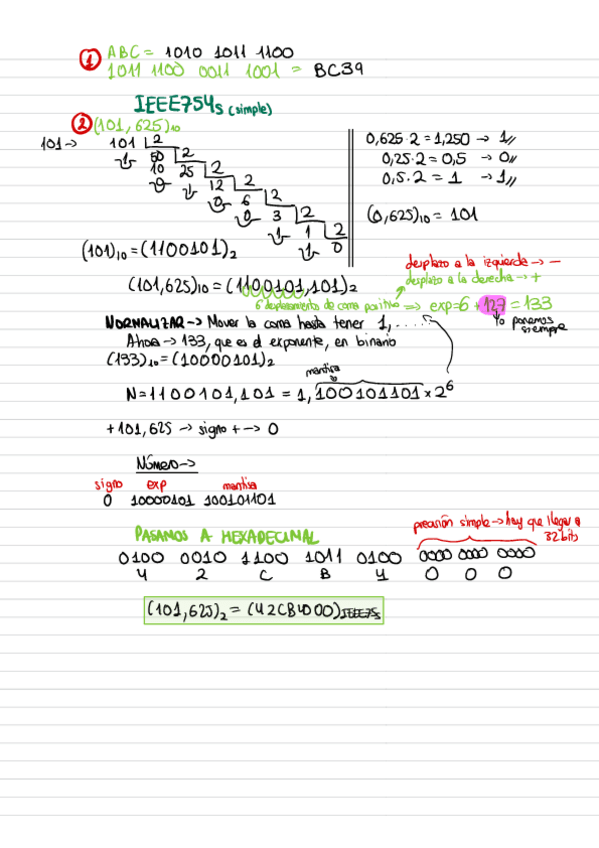 1 ABC = 1010 1011 1100
1011 1100 0011 1001 = BC39
IEEE754s (simple)
2 (101,625)10
101→ 101 2
1 50 2
10 25 2
0 1 12 2
0 6 2
0 3 2
1 1 2
1 0
0,625·2=1,250 → 1//
0,25·2=0,5 → 0//
0,5·2 = 1 → 1//
(0,625)10 = 101
(101)10=(1100101)2
desplazo a la izquierda → −
desplazo a la derecha → +
(101,625)10=(1100101,101)2
6 desplazamiento de coma positivo => exp=6+127=133
lo ponemos siempre
NORMALIZAR→ Mover la coma hasta tener 1,.....
Ahora → 133, que es el exponente, en binario
(133)10=(10000101)2
mantisa
N=1100101,101 = 1,100101101×2^6
+101,625 → signo + → 0
Número→
signo exp mantisa
0 10000101 100101101
PASAMOS A HEXADECINAL
precisión simple→hay que llegar a 32bits
0100 0010 1100 1011 0100 0000 0000 0000
4 2 C B 4 0 0 0
(101,625)2 = (42CB4000)IEEE75s